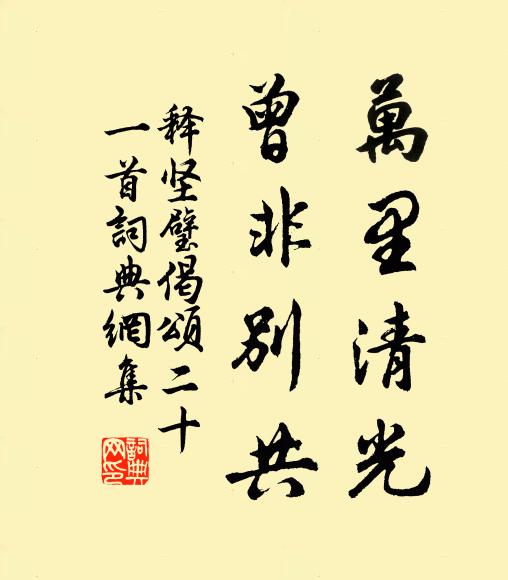 萬里清光
曾非別共
释坚璧偈頌二十
一首詞典網集
詞典网印